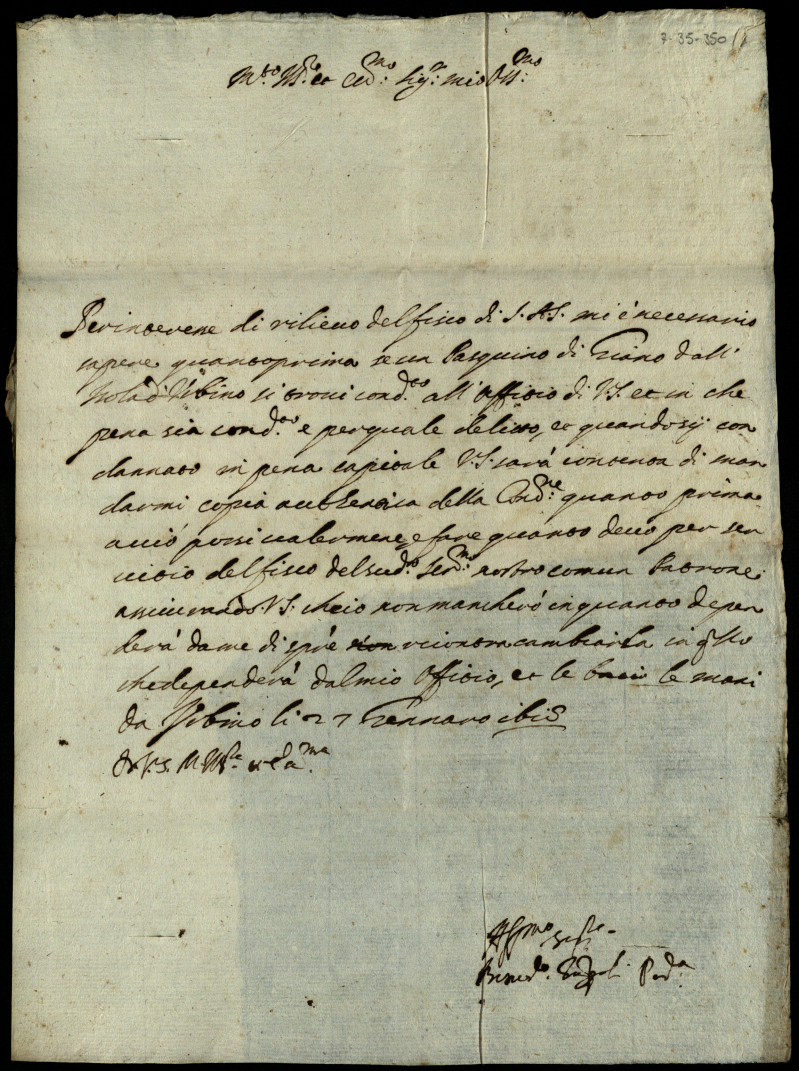 7-35-350
M.to Ill.re et Ecc.mo Sig.r mio Oss.mo
Per interesse di rilievo del fisco di S. A. S. mi è necessario
sapere quantoprima se un Pasquino di Giano dall'
Isola d'Urbino si trovi cond.to all'offitio di V.S. et in che
pena sia cond.to e per quale delitto, et quando sij con
dannato in pena capitale V.S. sarà contenta di man
darmi copia autentica della Cond.ne quanto prima
acciò possi valermene, e fare quanto devo per ser
vitio del fisco del sud.o Ser.mo nostro comun Padrone
assicurando V.S. che io non mancherò in quanto depen
derà da me di ricontracambiarla in
che dependerà dal mio Offitio, et le bacio le mani
da Urbino li 27 Gennaro
Di V.S. M. Ill.re et
Aff.mo
Pod.a